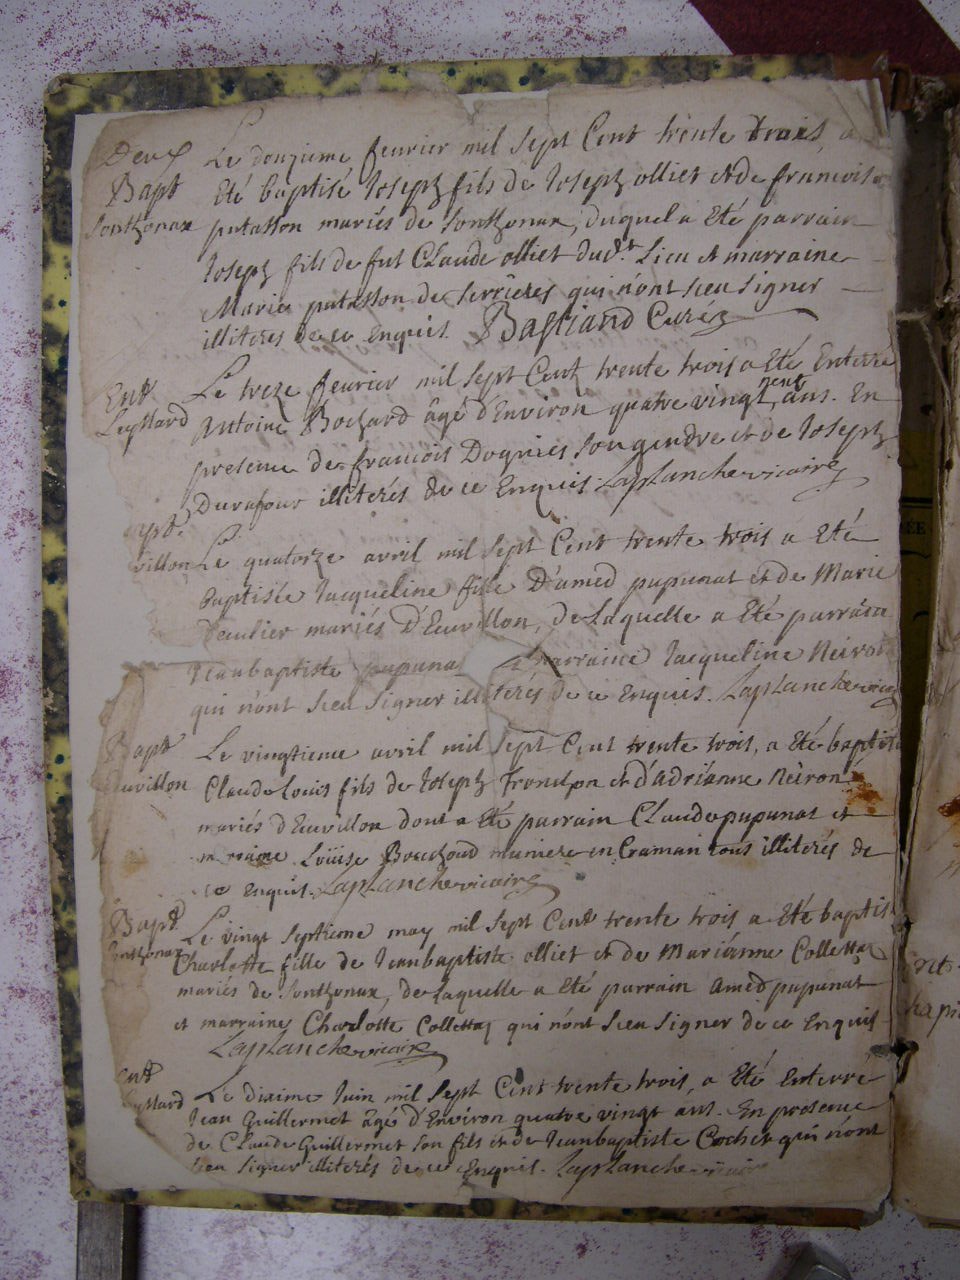 Deux Le douzieme feurier mil sept Cent trente trois, a
Bapt Eté baptisé Joseph fils de Joseph olliet et de francoise
Sonthonax putasson mariés de Sonthonax, duquel a Eté parrain
Joseph fils de fut Claude olliet dud.t Lieu et marraine
Marie putasson de Serrieres qui n'ont sceu signer
illiterés de ce Enquis. Bastiand Curé
Ent Le treze feurier mil sept Cent trente trois a Eté Enterré
Leyssard Antoine Bochard âgé d'Environ quatre vingt neuf ans. En
presence de francois Duquies son gendre et de Joseph
Durafour illiterés de ce Enquis. Laplanche vicaire
apt.
villon Le quatorze avril mil sept Cent trente trois a Eté
Baptisée Jacqueline fille D'amed pupunat et de Marie
mariés D'Euvillon, de Laquelle a Eté parrain
Jeanbaptiste pupunat Et marraine Jacqueline Neiron
qui n'ont sceu signer illiterés de ce enquis. Laplanche vicai
Bapt Le vingtieme avril mil sept Cent trente trois, a Eté baptisé
Euvillon Claude Louis fils de Joseph Tronchon et d'Adriänne Neiron
mariés d'Euvillon dont a Eté parrain Claude pupunat et
marraine Loüise Bouchoud muniere en Craman tous illiterés de
ce Enquis. Laplanche vicaire
Bapt Le vingt septieme may mil sept Cent trente trois a Eté baptisé
Sonthonax Charlotte fille de Jeanbaptiste olliet et de Mariänne Collettaz
mariés de Sonthonax, de Laquelle a Eté parrain amed pupunat
et marraine Charlotte Collettaz qui n'ont sceu signer de ce Enquis
Laplanche vicaire
Ent
Leyssard Le dixime Juin mil sept Cent trente trois, a Eté Enterré
Jean Guillermet âgé d'Environ quatre vingt ans. En presence
de Claude Guillermet son fils et de Jeanbaptiste Cochet qui n'ont
sceu signer illiterés de ce Enquis. Laplanche vicaire